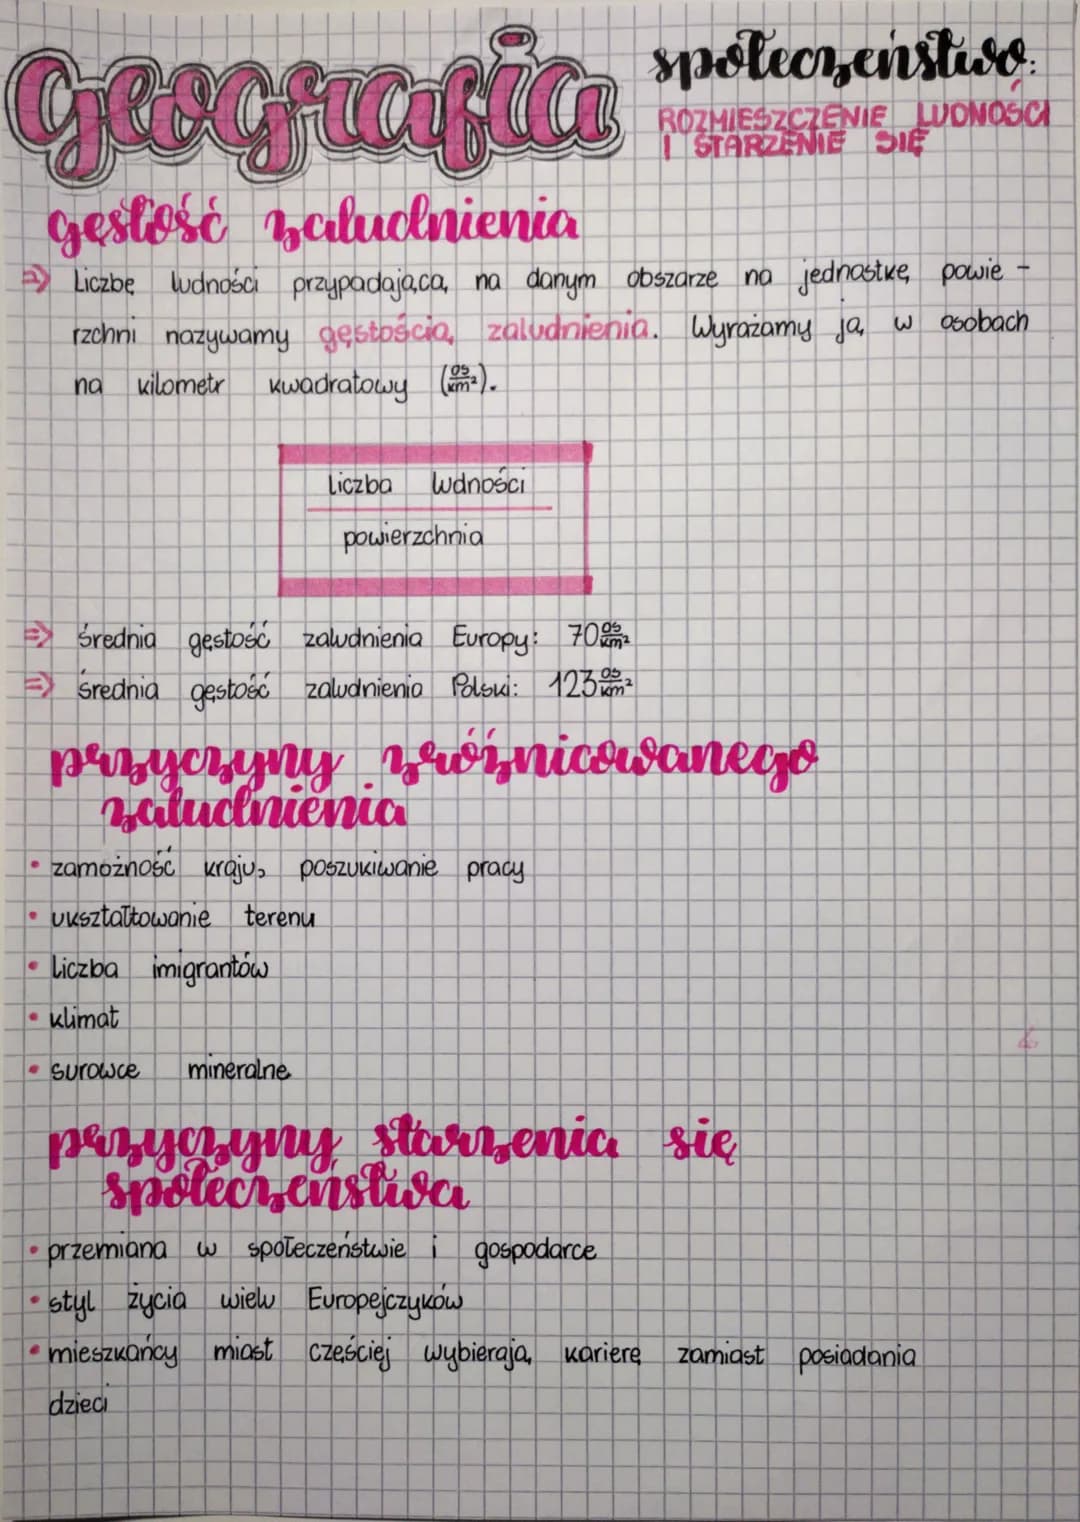 Geografia
społeczeństwo:
ROZMIESZCZENIE LUDNOŚCI
I STARZENIE SIĘ
gęstość zaludnienia
⇒ Liczbę ludności przypadającą na danym obszarze na jednostkę powie-
rzchni nazywamy gęstością zaludnienia. Wyrażamy ją w osobach
na kilometr kwadratowy (os/km²).
liczba ludności
powierzchnia
⇒ średnia gęstość zaludnienia Europy: 70 os/km²
⇒ średnia gęstość zaludnienia Polski: 123 os/km²
przyczyny zróżnicowanego
zaludnienia
• zamożność kraju, poszukiwanie pracy
• ukształtowanie terenu
• liczba imigrantów
• klimat
• surowce mineralne
przyczyny starzenia się
społeczeństwa
• przemiana w społeczeństwie i gospodarce
• styl życia wielu Europejczyków
• mieszkańcy miast częściej wybierają karierę zamiast posiadania
dzieci